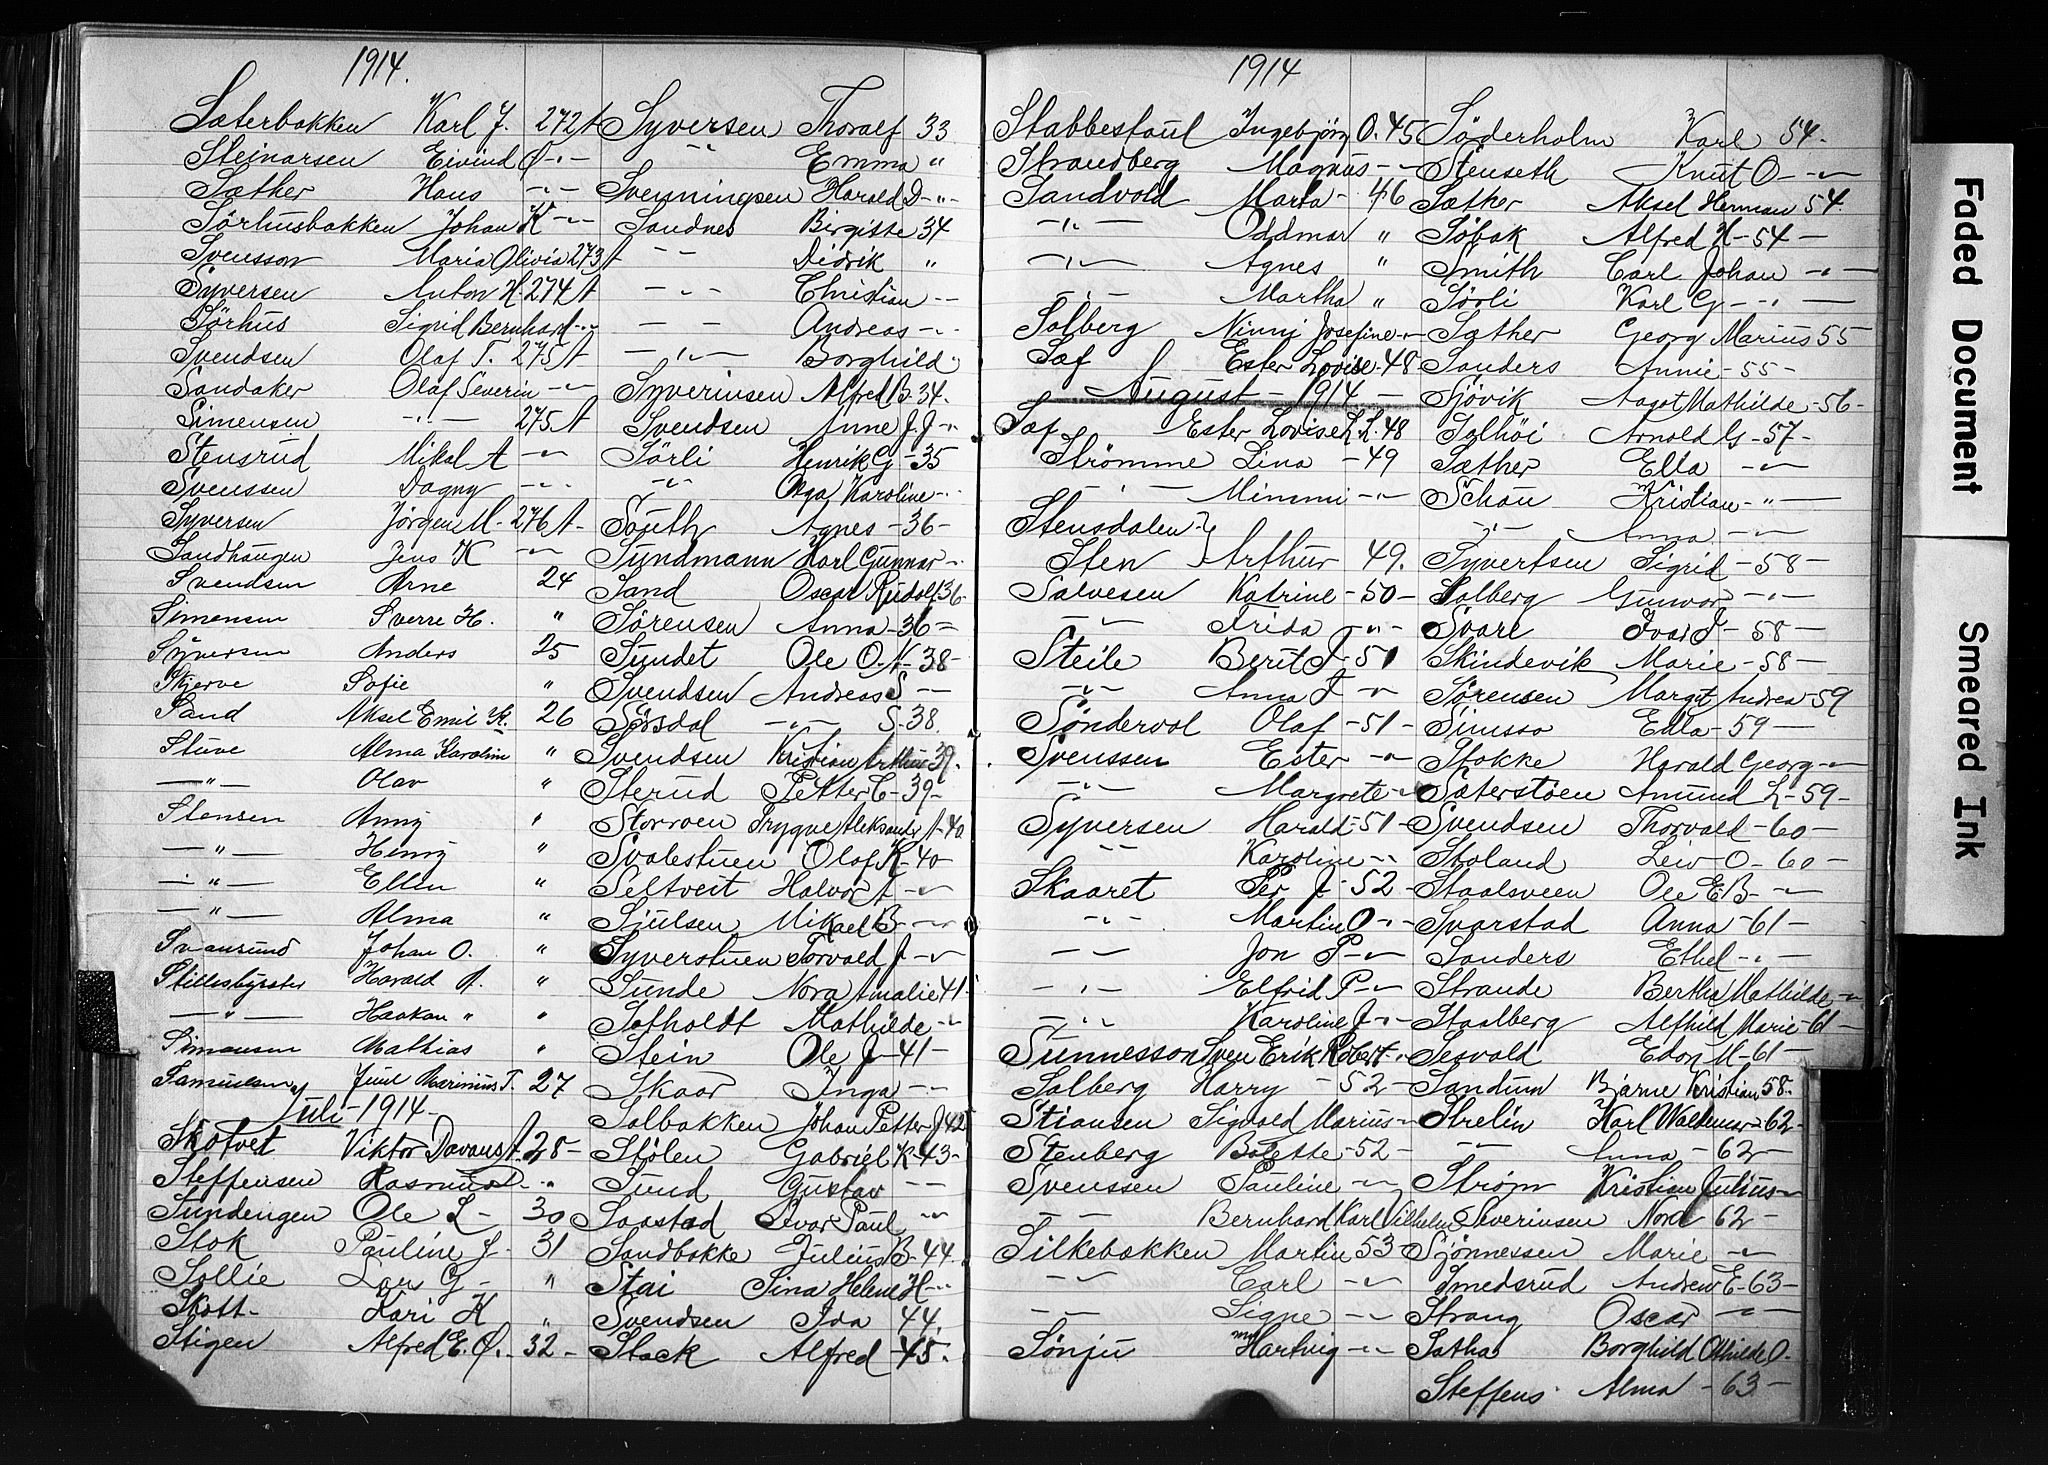 1914.
Sæterbakken Karl J. 272 A
Steinarsen Eivind Ø -"-
Sæther Hans -"-
Sörhusbakken Johan K -"-
Svensson Maria Olivia 273 A
Syversen Anton H. 274 A
Sörhus Sigrid Bernhard -"-
Svendsen Olaf T. 275 A
Sandaker Olaf Severin -"-
Simensen -"- 275 A
Stensrud Mikal A -"-
Svenssen Dagny -"-
Syversen Jörgen M. 276 A.
Sandhaugen Jens K -"-
Svendsen Arne 24
Simensen Sverre H. "
Syversen Anders 25
Skjerve Sofie "
Sand Aksel Emil K. 26
Stuve Alma Karolin "
-"- Olav "
Stensen Anny "
-"- Henry "
-"- Ellen "
-"- Alma "
Svansund Johan O. "
Harald A. "
-"- Haakon " "
Simensen Mathias "
Samuelsen Juul Marinius T. 27
Juli 1914
Skotvet Viktor A. 28
Steffensen Rasmus -"-
Sundengen Ole L - 30
Stok Pauline J. 31
Sollie Lars G - "
Skott Kari K "
Stigen Alfred E. Ø. 32
Syversen Thoralf 33
" Emma "
Svenningsen Harald D -"-
Sandnes Birgitte 34
- Didrik "
-"- Christian --
- - Andreas -"-
-"- Borghild "
Syverinsen Alfred B. 34.
Svendsen Anne J. J -"-
Sörli Henrik G - 35
-"- Olga Karoline -"-
South Agnes - 36 -
Sundmann Karl Gunnar -
Sand Oscar Rudolf 36
Sørensen Anna - 36 -
Sundet Ole O. N - 38 -
Svendsen Andreas S --
Sørsdal -"- S. 38
Svendsen Kristian Arthur 39.
Sterud Petter C - 39 -
Storroen Trygve Aleksander A - 40
Svalestuen Olaf K - 40 -
Seltveit Halvor A -"-
Sjulsen Mikael B -"-
Syverstuen Torvald J -"-
Sunde Nora Amalie 41 -
Sotholdt Mathilde -"-
Stein Ole J - 41 -
Skaar Inga --
Solbakken Johan Petter J 42
Stölen Gabriel K - 43 -
Sund Gustav --
Saastad Ivar Paul -"-
Sandbakke Julius B - 44.
Stai Sina Helene H -"-
Svendsen Ida 44.
Slack Alfred - 45.
1914
Stabbestaul Ingebjörg O. 45
Strandberg Magnus -"-
Sandvold Marta - 46
-"- Oddmar "
-"- Agnes "
-"- Martha "
Solberg Ninni Josefine -"-
Saf Ester Lovise - 48
August 1914 -
Saf Ester Lovise L. L. 48
Strømme Lina - 49
-"- Mimmi -"-
Stensdalen
Sten Arthur 49.
Salvesen Katrine - 50 -
-"- Frida -"-
Steile Berit J - 51
-"- Anna J -"-
Sönderval Olaf - 51 -
Svenssen Ester -"-
-"- Margrete -"-
Syversen Harald - 51 -
-"- Karoline -"-
Skaaret Per J - 52 -
-"- Martin O -"-
-"- Jon P -"-
-"- Elfrid P -"-
-"- Karoline J -"-
Sunnesson Sven Erik Robert -"-
Solberg Harry - 52 -
Stiansen Sigvald Marius -"-
Stenberg Bolette - 52 -
Svenssen Pauline -"-
-"- Bernhard Karl Vilhelm
Silkebækken Martin 53 -
-"- Carl -"-
-"- Signe -"-
Sønju Hartvig -"-
Söderholm Karl 54 -
Stenseth Knut O -"-
Sæther Aksel Herman 54.
Söbak Alfred H - 54 -
Smith Carl Johan -"-
Sörli Karl G -"-
Sæther Georg Marius 55
Sanders Annie - 55 -
Sjövik Aagot Mathilde - 56 -
Solhöi Arnold G - 57 -
Sæther Ella -"-
Schau Kristian -"-
-"- Anna -"-
Syvertsen Sigrid - 58 -
Solberg Gunvor -"-
Svare Ivar J - 58 -
Skindevik Marie - 58 -
Sørensen Margit Andrea 59
Simsso Edla - 59 -
Stokke Harald Georg -"-
Sæterstøen Amund L - 59 -
Svendsen Thorvald - 60 -
Støland Leiv O - 60 -
Staalsveen Ole E B -"-
Svarstad Anna - 61 -
Sanders Ethel -"-
Strande Bertha Mathilde -"-
Staalberg Alfhild Marie - 61
Sesvold Edon M - 61 -
Sandum Bjarne Kristian 58 -
Strelin Karl Waldemar - 62 -
-"- Anna - 62 -
Strøm Kristian Julius -"-
Severinsen Nora 62 -
Sjönnessen Marie -"-
Smedsrud Andrew E - 63 -
Strang Oscar -"-
Satha Borghild Othilde O.
Steffens Alma - 63 -
Faded Document
Smeared Ink